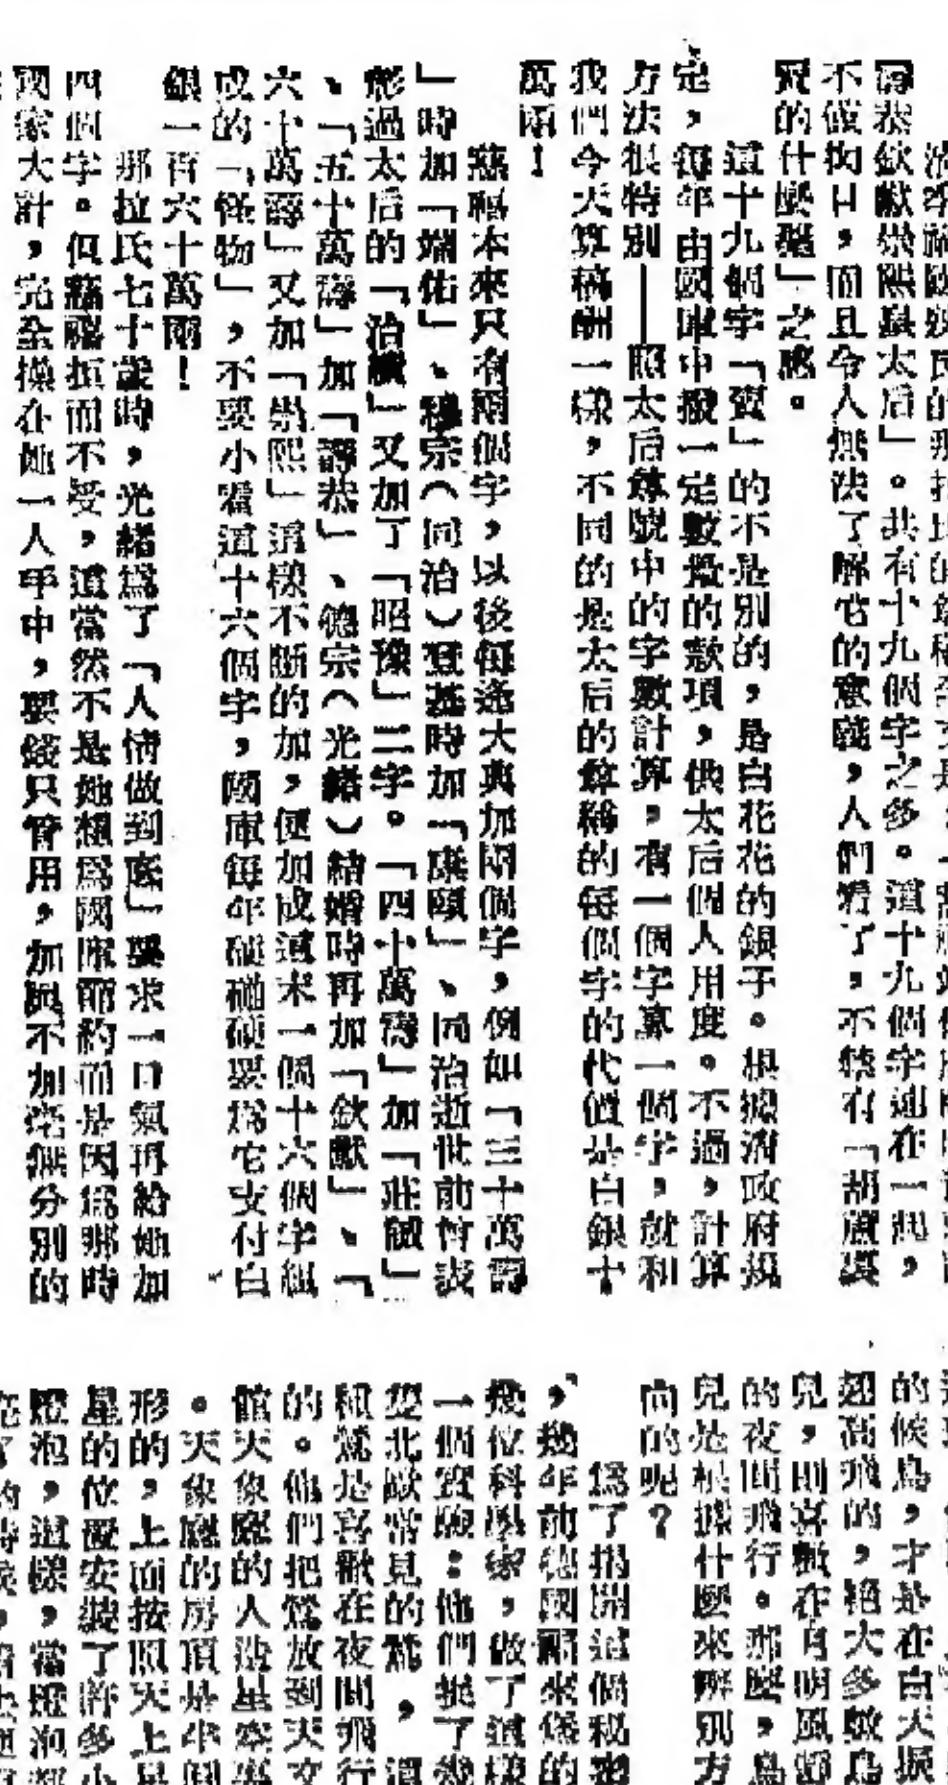 壽恭欽獻崇熙皇太后」。共有十九個字之多。這十九個字連在一起,
不僅拗口,而且令人無法了解它的意義,人們看了,不禁有「胡蘆裏
賣的什麼藥」之感。
這十九個字「賣」的不是別的,是白花花的銀子。根據清政府規
定,每年由國庫中撥一定數量的款項,供太后個人用度。不過,計算
方法很特別——照太后尊號中的字數計算,有一個字算一個字,就和
我們今天算稿酬一樣,不同的是太后的尊稱的每個字的代價是白銀十
萬兩!
慈禧本來只有兩個字,以後每逢大典加兩個字,例如「三十萬壽
」時加「端佑」、穆宗(同治)登基時加「康頤」、同治逝世前曾表
彰過太后的「治績」又加了「昭豫」二字。「四十萬壽」加「莊誠」
、「五十萬壽」加「壽恭」、德宗(光緒)結婚時再加「欽獻」、「
六十萬壽」又加「崇熙」這樣不斷的加,便加成這末一個十六個字組
成的「怪物」,不要小看這十六個字,國庫每年硬碰硬要爲它支付白
銀一百六十萬兩!
那拉氏七十歲時,光緒爲了「人情做到底」要求一口氣再給她加
四個字。但慈禧拒而不受,這當然不是她想爲國庫節約而是因爲那時
國家大計,完全操在她一人手中,要錢只管用,加與不加毫無分別的
的候鳥,才是在白天振
翅高飛的,絕大多數鳥
兒,則喜歡在有明風靜
的夜間飛行。那麼,鳥
兒是根據什麼來辨別方
向的呢?
爲了揭開這個秘密
,幾年前德國爾來堡的
幾位科學家,做了這樣
一個實驗:他們挺了幾
隻北歐常見的鶯,這
種鶯是喜歡在夜間飛行
的。他們把鶯放到天文
館天象廳的人造星空裏
。天象廳的房頂是半圓
形的,上面按照天上星
星的位置安裝了許多小
燈泡,這樣,當燈泡都